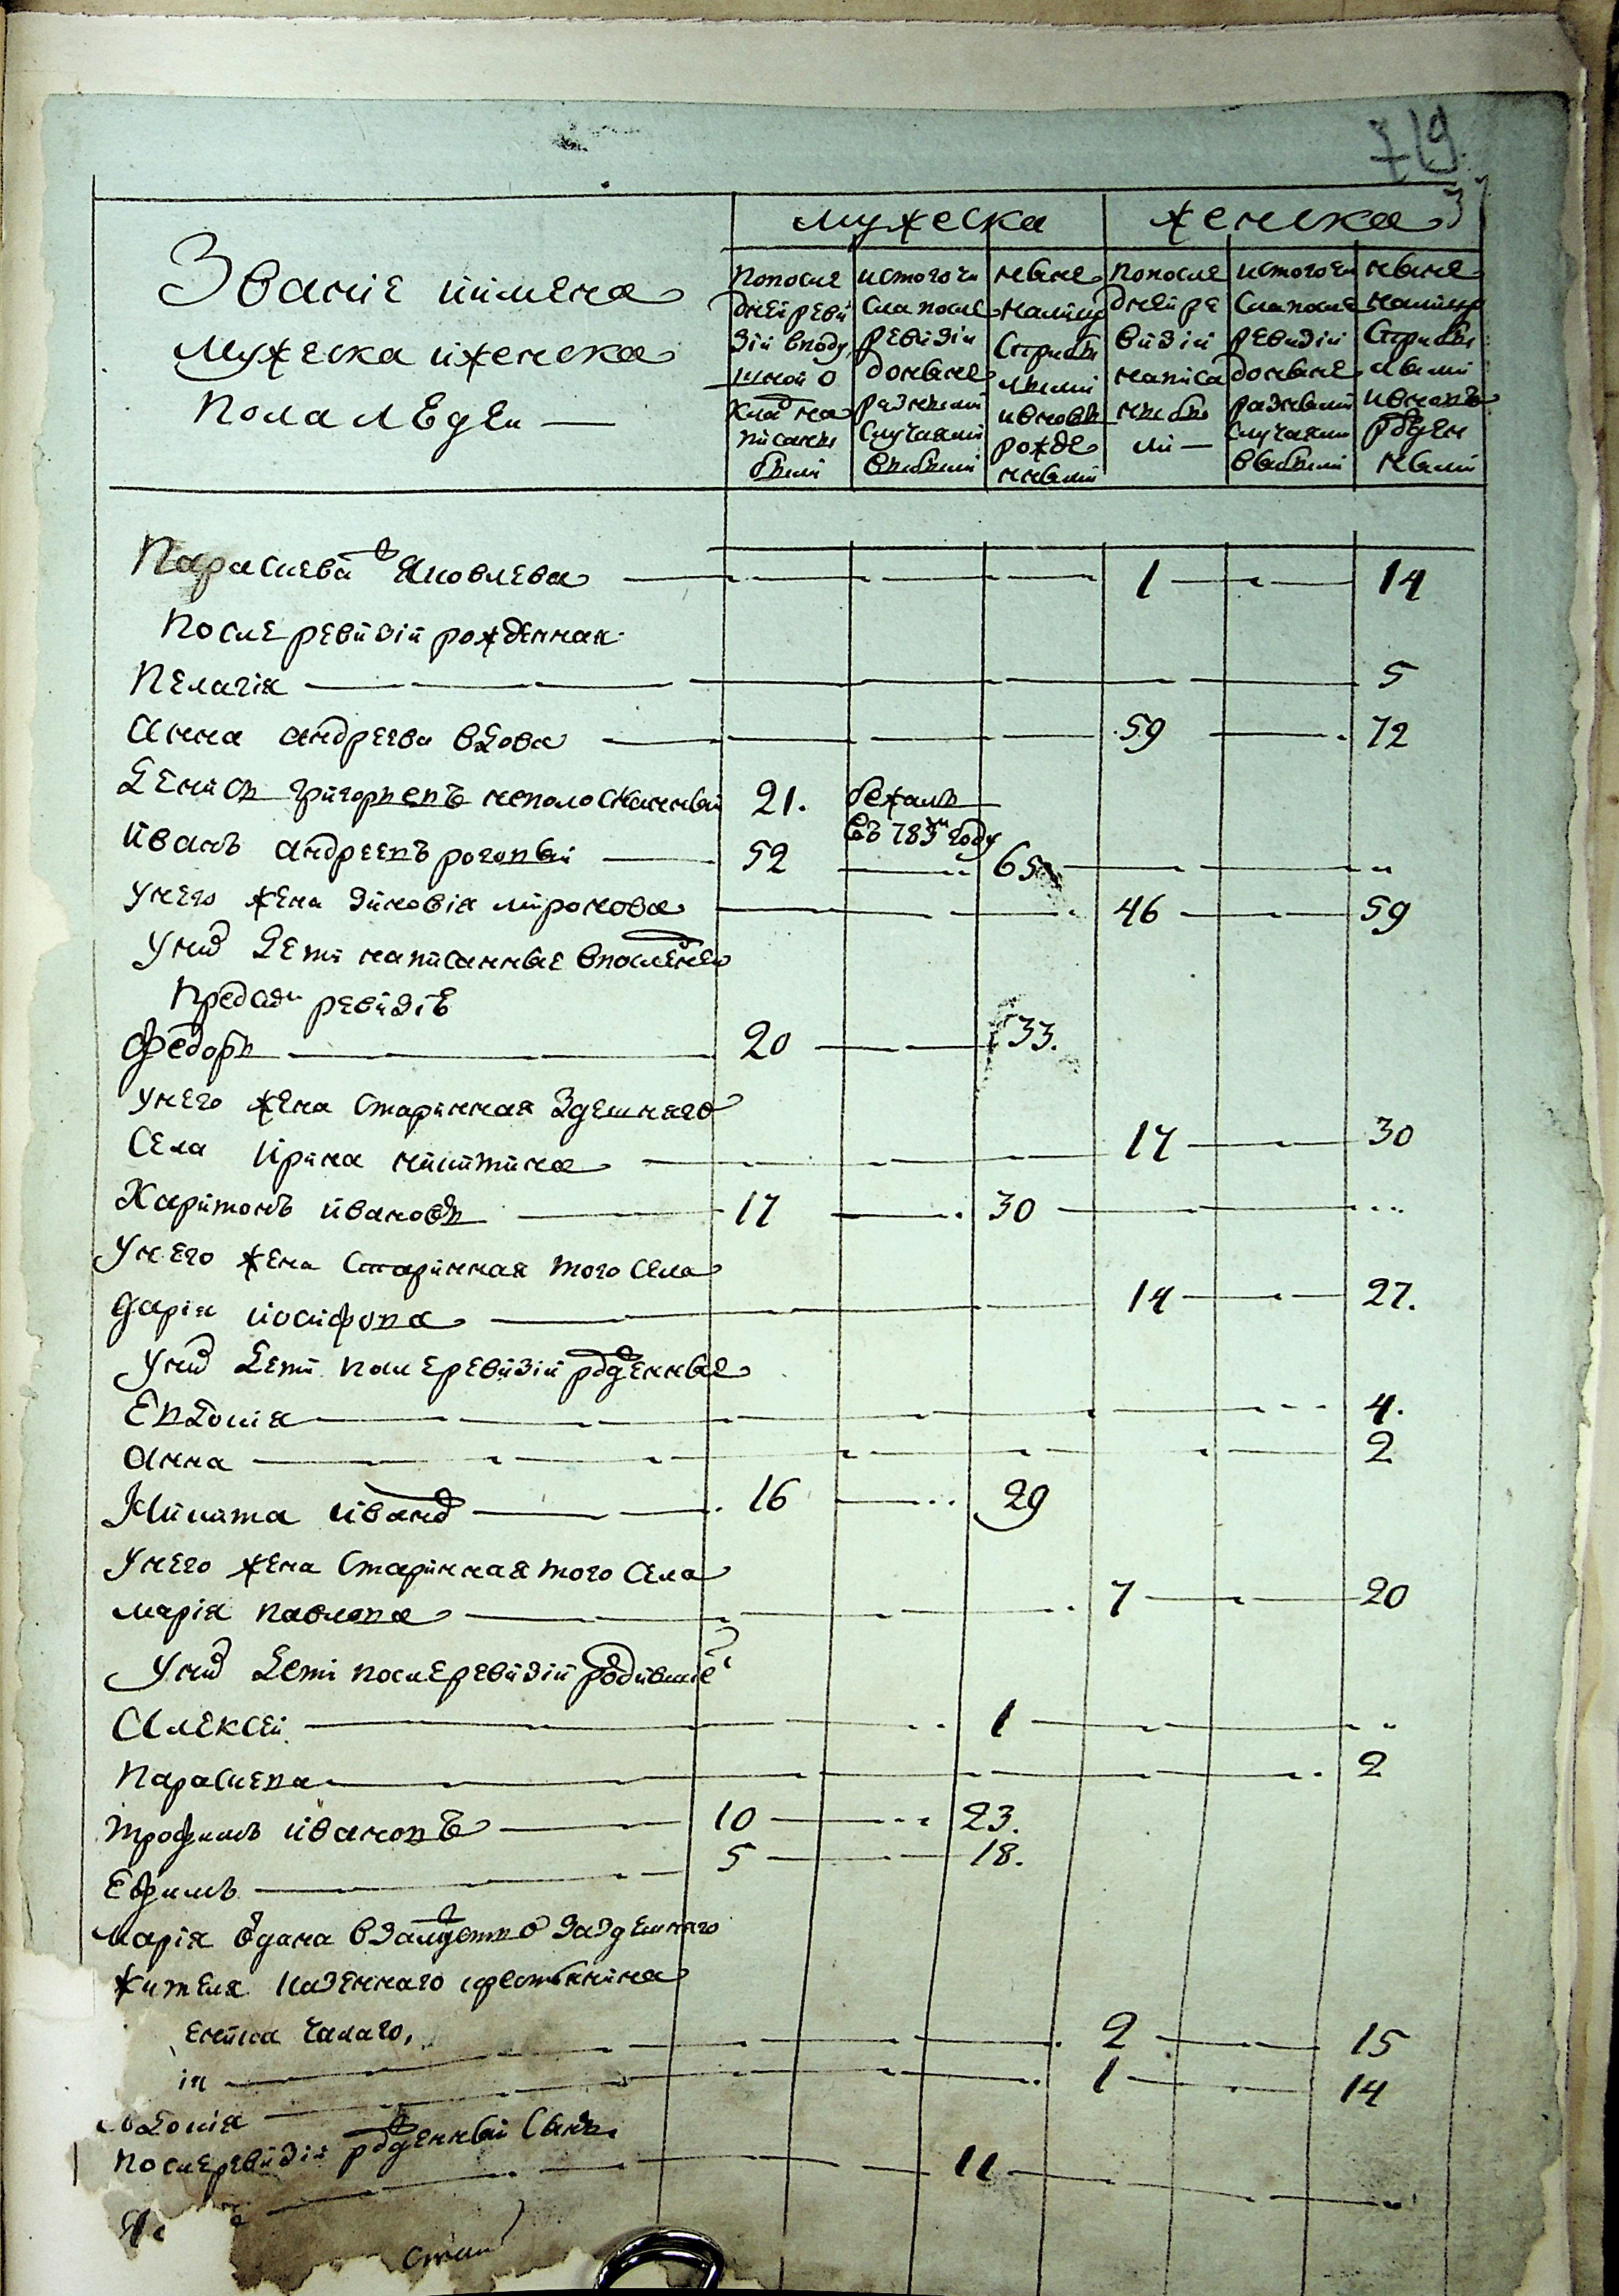 719
мужеска женска
Званіе иимена
мужеска иженска
пола людеи
попосле
дней реви
зіи вподу
шной о
кладъ на
писаны
были
истого чи
сла после
ревизіи
доныне
разными
случаями
выбыли
ныне
налицо
сприбы
лыми
ивновь
рожде
нными
попосле
дней ре
визіи
написа
ны бы
ли
истого чи
сла после
ревизіи
доныне
разными
случаями
выбыли
ныне
налицо
сприбы
лыми
ивновь
рожден
ными
Параскева Яковлева 1 14
После ревизіи рожденная
Пелагія 5
Анна андреева вдова 59 72
Денисъ григорьевъ неполосканный 21. бежалъ въ 783м году
Иванъ андреевъ роговый 52 65
Унего жена зиновія миронова 46 59
Унихъ дети написанные впоследней
Предъ ревизіѣ
Федоръ 20 33.
Унего жена старинная здешняго
Села ирина никитина 17 30
Харитонъ ивановъ 17 30
Унего жена старинная того села
Дарія иосифова 14 27.
Унихъ дети после ревизіи рожденные
Евдокія 4.
Анна 2
Никита ивановъ 16 29
Унего жена старинная того села
марія павлова 7 20
Унихъ дети после ревизіи родившіе
Алексей 1
Параскева 2
трофимъ ивановъ 10 23.
Ефимъ 5 18.
Марія одана взамужство заздешняго
жителя казеннаго крестьянина
ениса чалаго, 2 15
ія 1 14
вдокія
После ревизіи рожденный сынъ
11